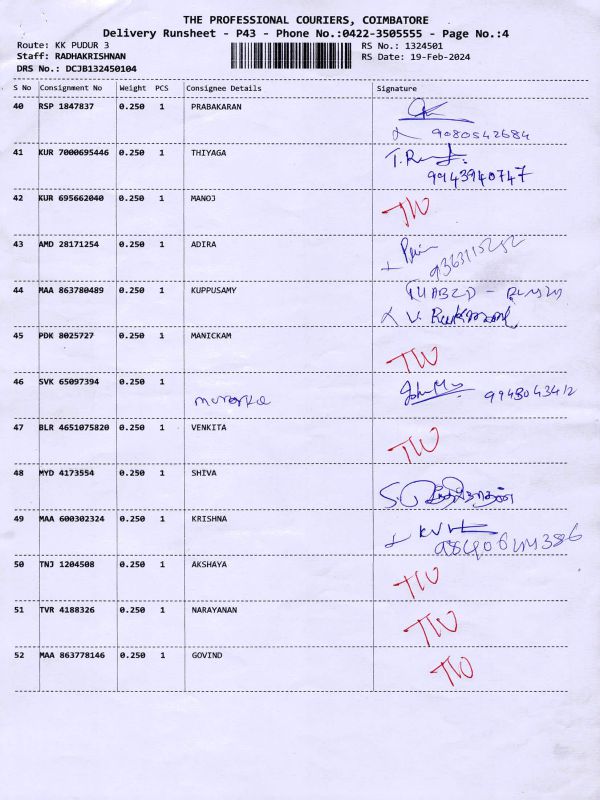 THE PROFESSIONAL COURIERS, COIMBATORE
Delivery Runsheet - P43 - Phone No.:0422-3505555 - Page No.:4
Route: KK PUDUR 3 RS No.: 1324501
Staff: RADHAKRISHNAN RS Date: 19-Feb-2024
DRS No.: DCJB132450104
S No Consignment No Weight PCS Consignee Details Signature
40 RSP 1847837 0.250 1 PRABAKARAN
9080542684
41 KUR 7000695446 0.250 1 THIYAGA
9943940747
42 KUR 695662040 0.250 1 MANOJ
43 AMD 28171254 0.250 1 ADIRA
44 MAA 863780489 0.250 1 KUPPUSAMY
45 PDK 8025727 0.250 1 MANICKAM
46 SVK 65097394 0.250 1
47 BLR 4651075820 0.250 1 VENKITA
48 MYD 4173554 0.250 1 SHIVA
49 MAA 600302324 0.250 1 KRISHNA
50 TNJ 1204508 0.250 1 AKSHAYA
51 TVR 4188326 0.250 1 NARAYANAN
52 MAA 863778146 0.250 1 GOVIND